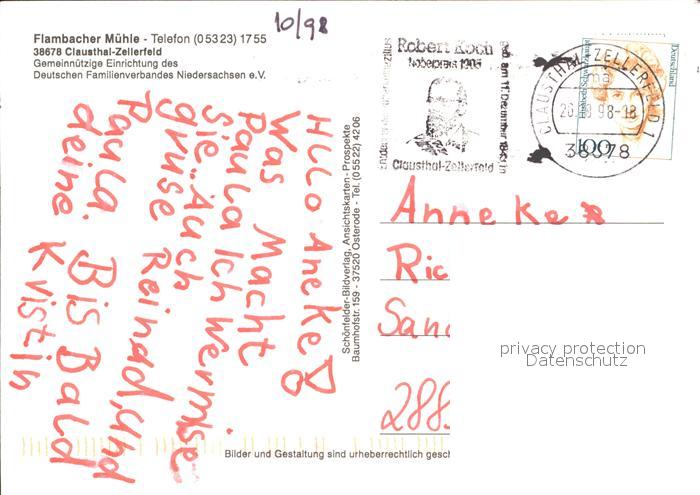 10/98
Flambacher Mühle - Telefon (0 53 23) 17 55
38678 Clausthal-Zellerfeld
Gemeinnützige Einrichtung des
Deutschen Familienverbandes Niedersachsen e.V.
Hllo Aneke
Was Macht
Paula Ich Wermise
Sie. Auch
gruse Reinad, und
Paula. Bis Bald
deine Kvistin
Schönfelder-Bildverlag, Ansichtskarten - Prospekte
Baumhofstr. 159 - 37520 Osterode - Tel. (0 55 22) 42 06
Robert Koch
Nobelpreis 1905
geb. am 11. Dezember 1843 in
Clausthal-Zellerfeld
CLAUSTHAL-ZELLERFELD 1
98-18
38678
Deutschland
100
Anneke
Ric
San
288
privacy protection
Datenschutz
Bilder und Gestaltung sind urheberrechtlich gesch